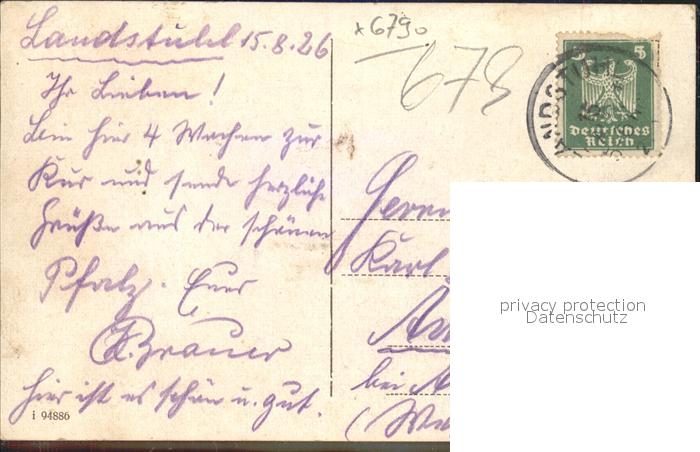 Landstuhl 15.8.26
Ihr Lieben!
Bin hier 4 Wochen zur
Kur und sende herzliche
Grüße aus der schönen
Pfalz. Euer
Brauer
hier ist es schön u. gut.
i 94886
x6790
678
5 5
Deutsches
Reich
Herrn
Karl
bei
privacy protection
Datenschutz